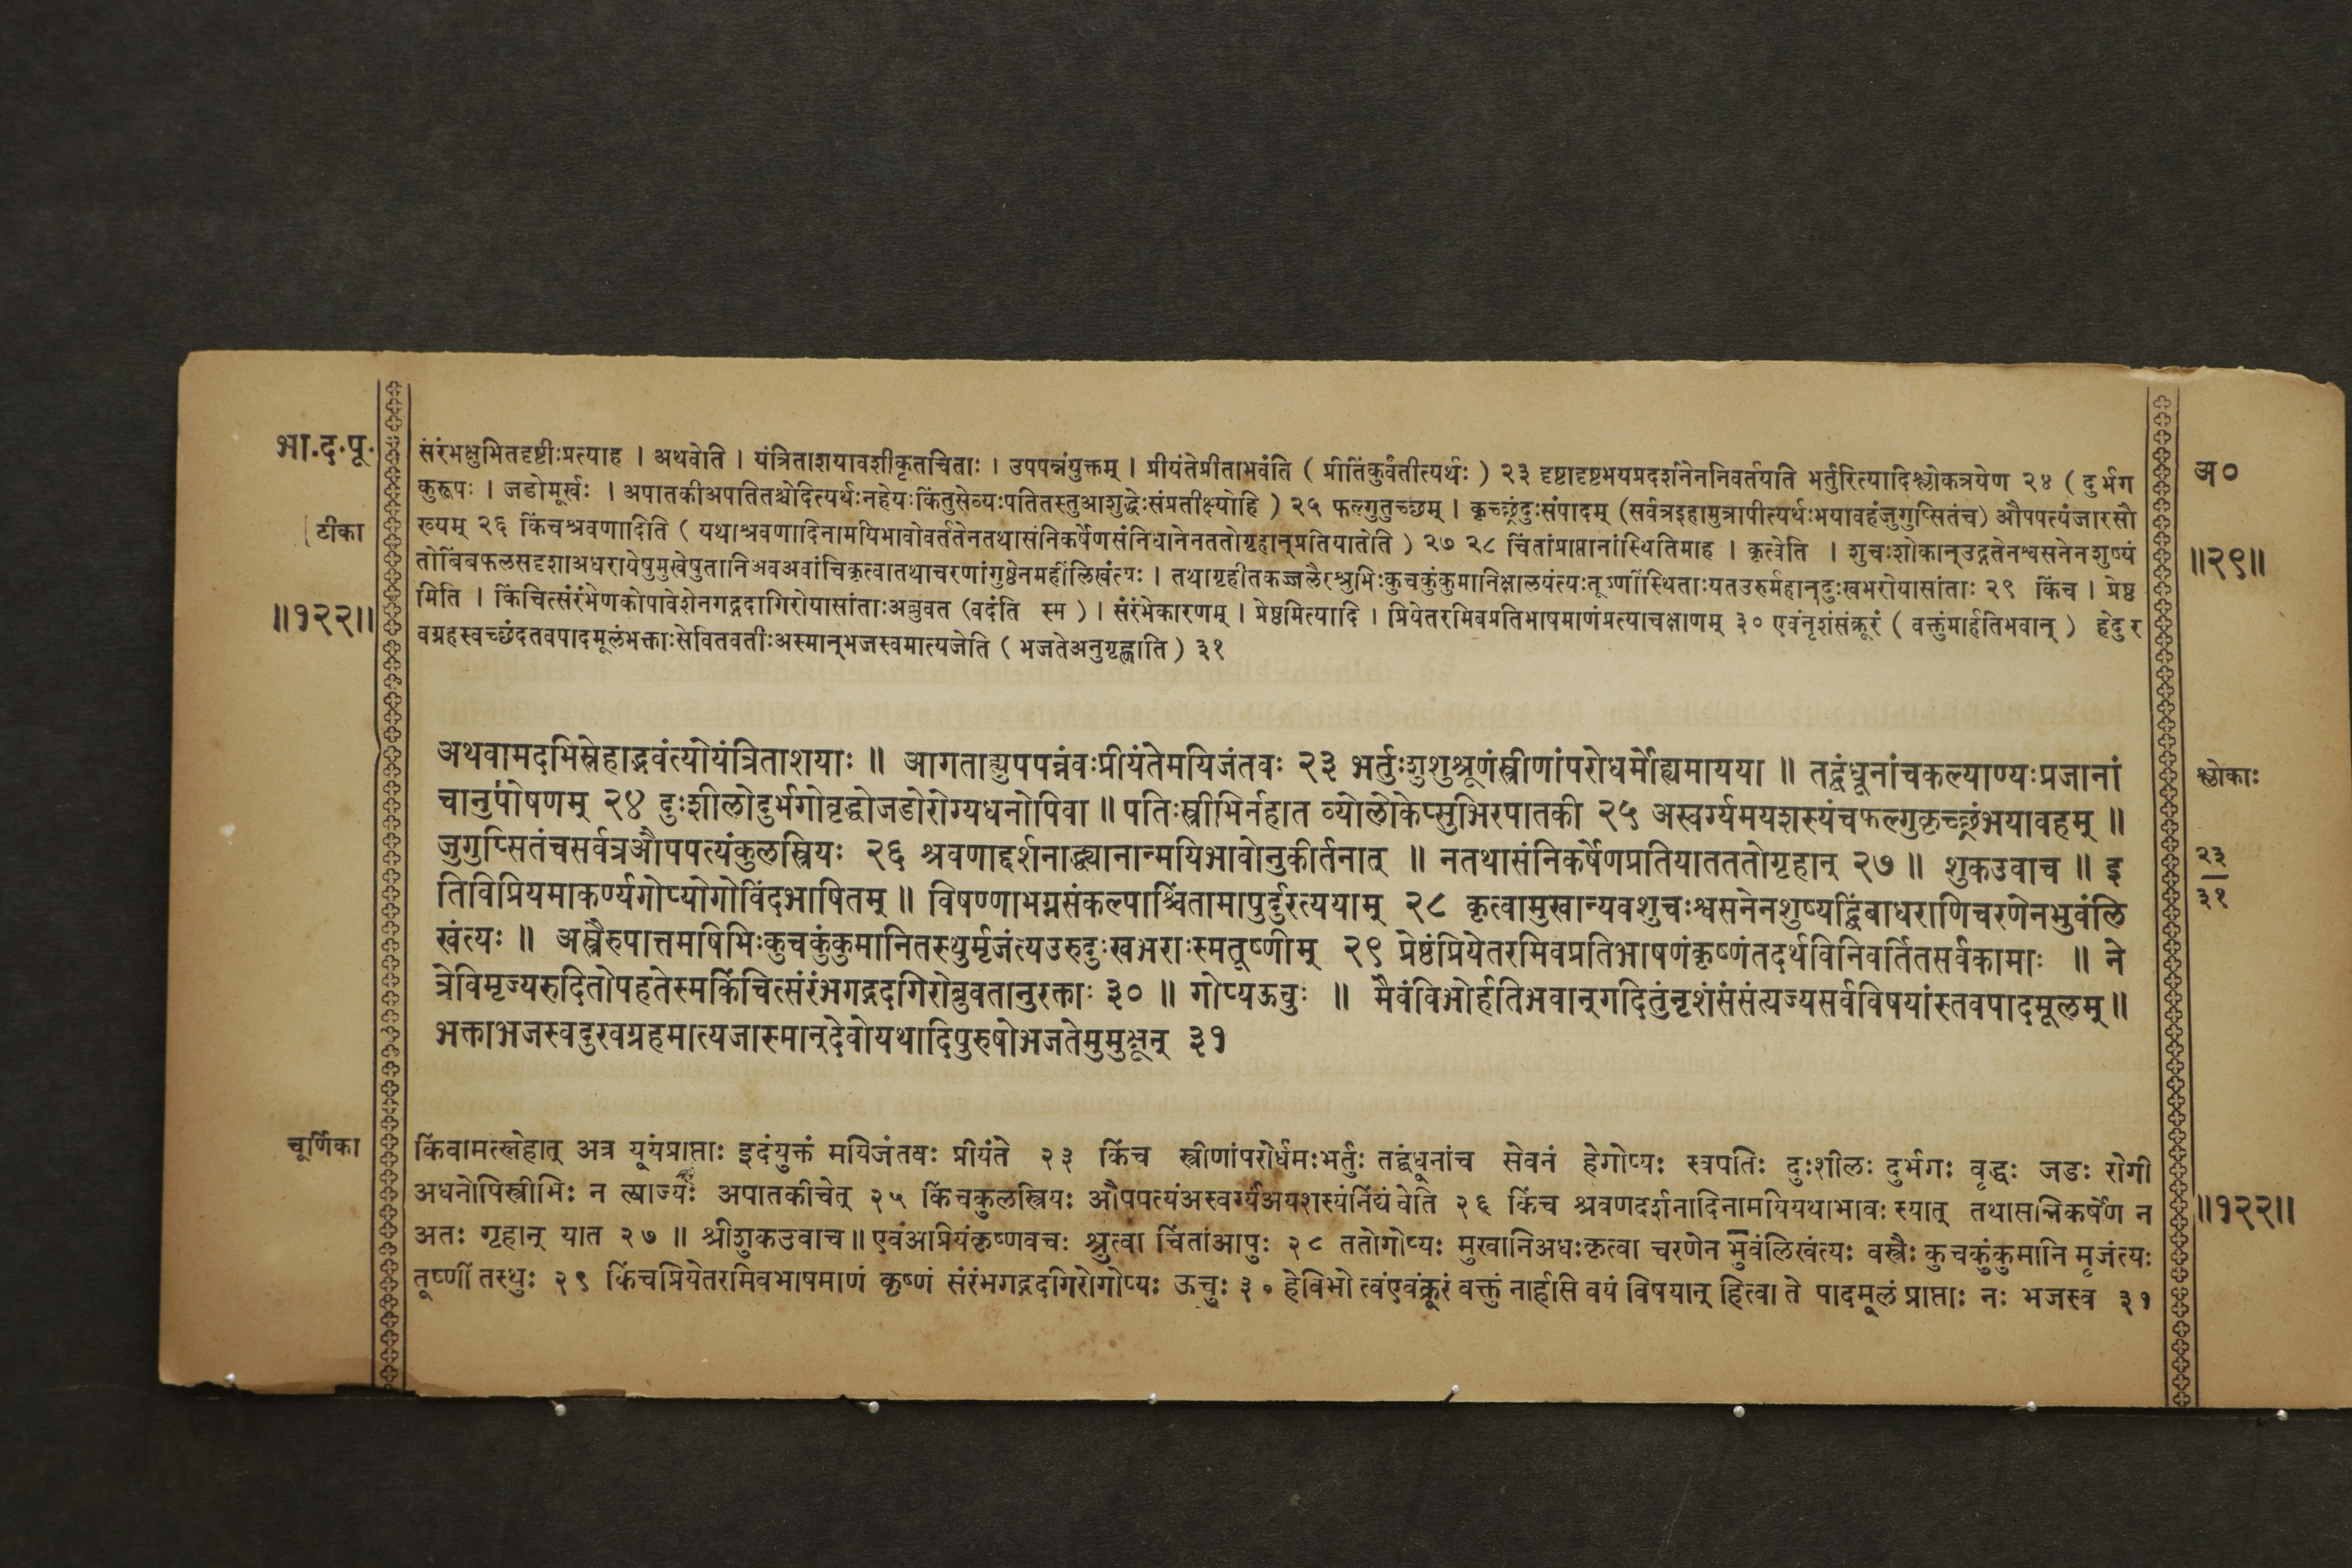 भा.द.पू.
टीका
॥१२२॥
संरंभक्षुभितदृष्टीःप्रत्याह । अथवेति । यंत्रिताशयावशीकृतचित्ताः । उपपन्नंयुक्तम् । प्रीयंतेप्रीताभवंति ( प्रीतिंकुर्वंतीत्यर्थः ) २३ दृष्टादृष्टभयप्रदर्शनेननिवर्तयति भर्तुरित्यादिश्लोकत्रयेण २४ ( दुर्भग
कुरूपः । जडोमूर्खः । अपातकीअपातितश्चोदित्यर्थःनहेयःकिंतुसेव्यःपतितस्तुआशुद्धेःसंप्रतीक्ष्योहि ) २५ फल्गुतुच्छम् । कृच्छ्रंदुःसंपादम् (सर्वत्रइहामुत्रापीत्यर्थःभयावहंजुगुप्सितंच) औपपत्यंजारसौ
ख्यम् २६ किंचश्रवणादिति ( यथाश्रवणादिनामयिभावोवर्ततेनतथासंनिकर्षेणसंनिधानेनततोगृहान्प्रतियातेति ) २७ २८ चिंतांप्राप्तानांस्थितिमाह । कृत्वेति । शुचःशोकान्उद्गतेनश्वसनेनशुष्यं
तोबिंबफलसदृशाअधरायेषुमुखेषुतानिअवअवांचिकृत्वातथाचरणांगुष्ठेनमहींलिखंत्यः । तथागृहीतकज्जलैरश्रुभिःकुचकुंकुमानिक्षालयंत्यःतूष्णींस्थिताःयतउरुर्महान्दुःखभरोयासांताः २९ किंच । प्रेष्ठ
मिति । किंचित्संरंभेणकोपावेशेनगद्गदागिरोयासांताःअब्रुवत (वदंति स्म ) । संरंभेकारणम् । प्रेष्ठमित्यादि । प्रियेतरमिवप्रतिभाषमाणंप्रत्याचक्षाणम् ३० एवंनृशंसंक्रूरं ( वक्तुंमार्हतिभवान् ) हेदुर
वग्रहस्वच्छंदतवपादमूलंभक्ताःसेवितवतीःअस्मान्भजस्वमात्यजेति ( भजतेअनुगृह्णाति ) ३१
अ०
॥२९॥
अथवामदभिस्नेहाद्भवंत्योयंत्रिताशयाः ॥ आगताह्युपपन्नंवःप्रीयंतेमयिजंतवः २३ भर्तुःशुशुश्रूणंस्त्रीणांपरोधर्मोह्यमायया ॥ तद्बंधूनांचकल्याण्यःप्रजानां
चानुपोषणम् २४ दुःशीलोदुर्भगोवृद्धोजडोरोग्यधनोपिवा ॥ पतिःस्त्रीभिर्नहात व्योलोकेप्सुभिरपातकी २५ अस्वर्ग्यमयशस्यंचफल्गुकृच्छ्रंभयावहम् ॥
जुगुप्सितंचसर्वत्रऔपपत्यंकुलस्त्रियः २६ श्रवणाद्दर्शनाद्ध्यानान्मयिभावोनुकीर्तनात् ॥ नतथासंनिकर्षेणप्रतियातततोगृहान् २७ ॥ शुकउवाच ॥ इ
तिविप्रियमाकर्ण्यगोप्योगोविंदभाषितम् ॥ विषण्णाभग्नसंकल्पाश्चिंतामापुर्दुरत्ययाम् २८ कृत्वामुखान्यवशुचःश्वसनेनशुष्यद्बिंबाधराणिचरणेनभुवंलि
खंत्यः ॥ अस्त्रैरुपात्तमषिभिःकुचकुंकुमानितस्थुर्मृजंत्यउरुदुःखभराःस्मतूष्णीम् २९ प्रेष्ठंप्रियेतरमिवप्रतिभाषणंकृष्णंतदर्थविनिवर्तितसर्वकामाः ॥ ने
त्रेविमृज्यरुदितोपहतेस्मकिंचित्संरंभगद्गदगिरोब्रुवतानुरक्ताः ३० ॥ गोप्यऊचुः ॥ मैवंविभोर्हतिभवान्गदितुंनृशंसंसंत्यज्यसर्वविषयांस्तवपादमूलम् ॥
भक्ताभजस्वदुरवग्रहमात्यजास्मान्देवोयथादिपुरुषोभजतेमुमुक्षून् ३१
श्लोकाः
२३
३१
चूर्णिका
किंवामत्स्नेहात् अत्र यूयंप्राप्ताः इदंयुक्तं मयिजंतवः प्रीयंते २३ किंच स्त्रीणांपरोर्धमःभर्तुः तद्बंधूनांच सेवनं हेगोप्यः स्वपतिः दुःशीलः दुर्भगः वृद्धः जडः रोगी
अधनोपिस्त्रीभिः न त्याज्यः अपातकीचेत् २५ किंचकुलस्त्रियः औपपत्यंअस्वर्ग्यंअयशस्यंनिंद्यं वेति २६ किंच श्रवणदर्शनादिनामयियथाभावः स्यात् तथासन्निकर्षेण न
अतः गृहान् यात २७ ॥ श्रीशुकउवाच॥ एवंअप्रियंकृष्णवचः श्रुत्वा चिंतांआपुः २८ ततोगोप्यः मुखानिअधःकृत्वा चरणेन भुवंलिखंत्यः वस्त्रैः कुचकुंकुमानि मृजंत्यः
तूष्णीं तस्थुः २९ किंचप्रियेतरमिवभाषमाणं कृष्णं संरंभगद्गदगिरोगोप्यः ऊचुः ३० हेविभो त्वंएवंक्रूरं वक्तुं नार्हसि वयं विषयान् हित्वा ते पादमूलं प्राप्ताः नः भजस्व ३१
॥१२२॥